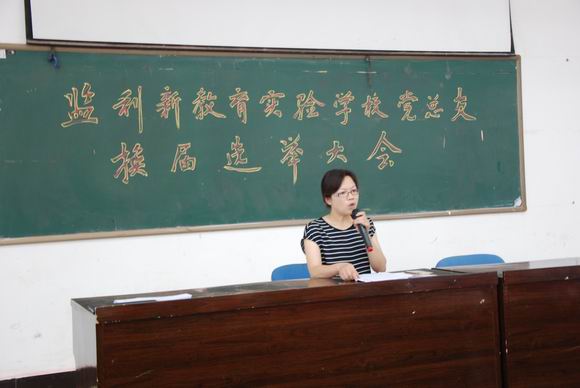 监利新教育实验学校党总支
换届选举大会